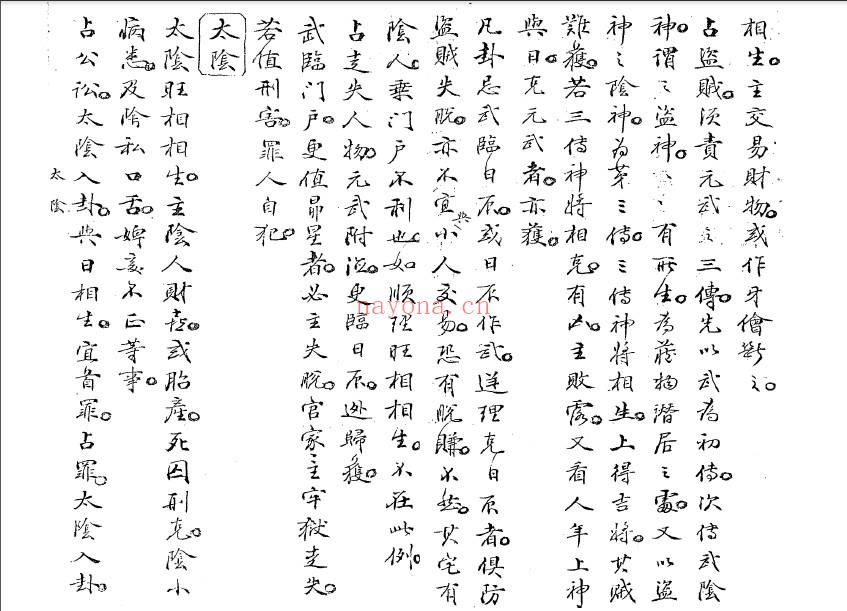 相生。主交易財物。或作牙儈斷之。
占盜賊。須責元武之三傳。先以武為初傳。次傳武陰
神。謂之盜神。〻〻有所生。為藏物潛居之處。又以盜
神之陰神。為第三傳。三傳神將相生。上得吉將。其賊
難獲。若三傳神將相克。有凶。主敗露。又看人年上神
與日。克元武者。亦獲。
凡卦忌武臨日辰。或日辰作武。逆理克日辰者。俱防
盜賊失脫。亦不宜與小人交易。恐有脫賺。不然。其宅有
陰人乗門戶不利也。如順理旺相相生。不在此例。
占走失人物。元武附日。更臨日辰。迯歸獲。
武臨門戶。更值昴星者。必主失脫。官家主牢獄走失。
若值刑害。罪人自犯。
太陰
太陰旺相相生。主陰人財喜。或胎產。死囚刑克。陰小
病患。及陰私口舌。婢妾不正等事。
占公訟。太陰入卦。與日相生。宜首罪。占罪。太陰入卦。
太陰
nayona.cn